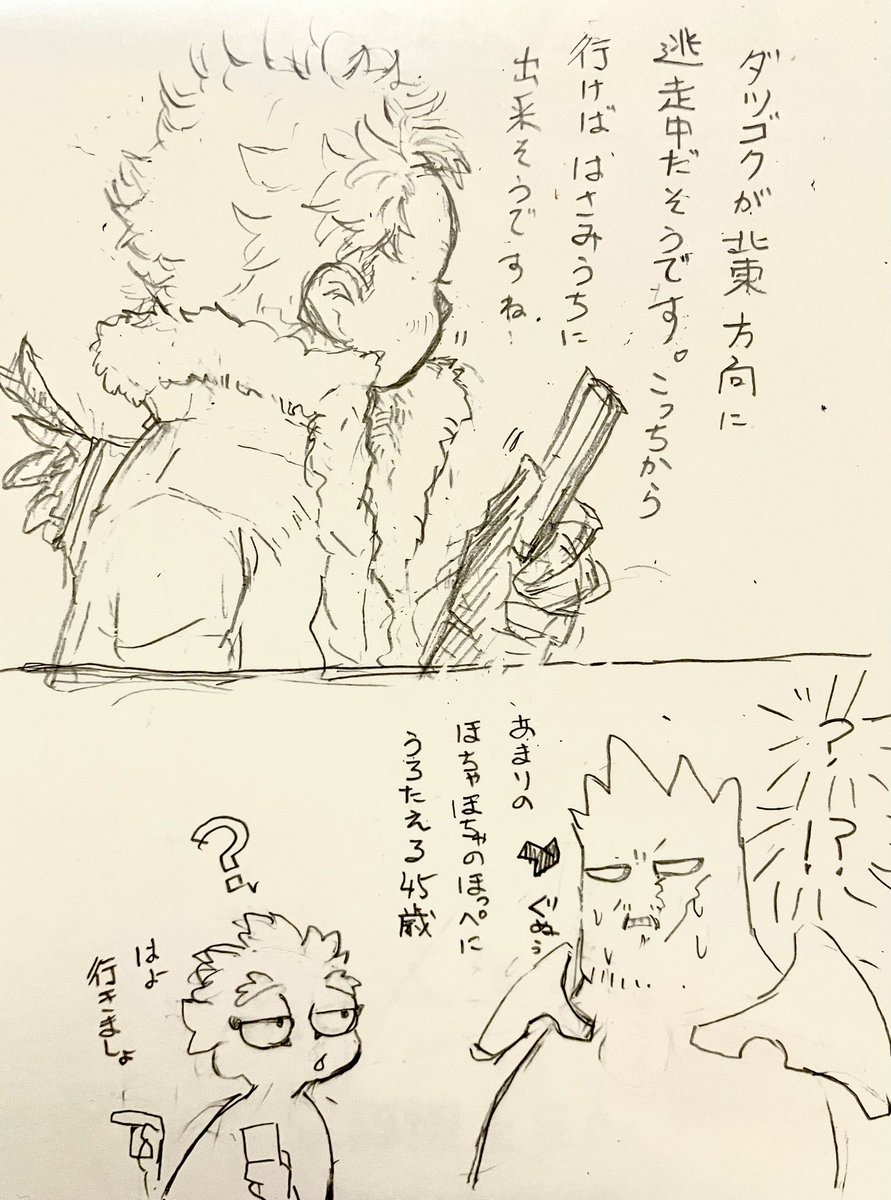 ダツゴクが北東方向に
逃走中だそうです。こっちから
行けばはさみうちに
出来そうですね
?
!?
ぐぬぅ
あまりの
ほちゃほちゃのほっぺに
うろたえる45歳
?
はよ
行きましょ